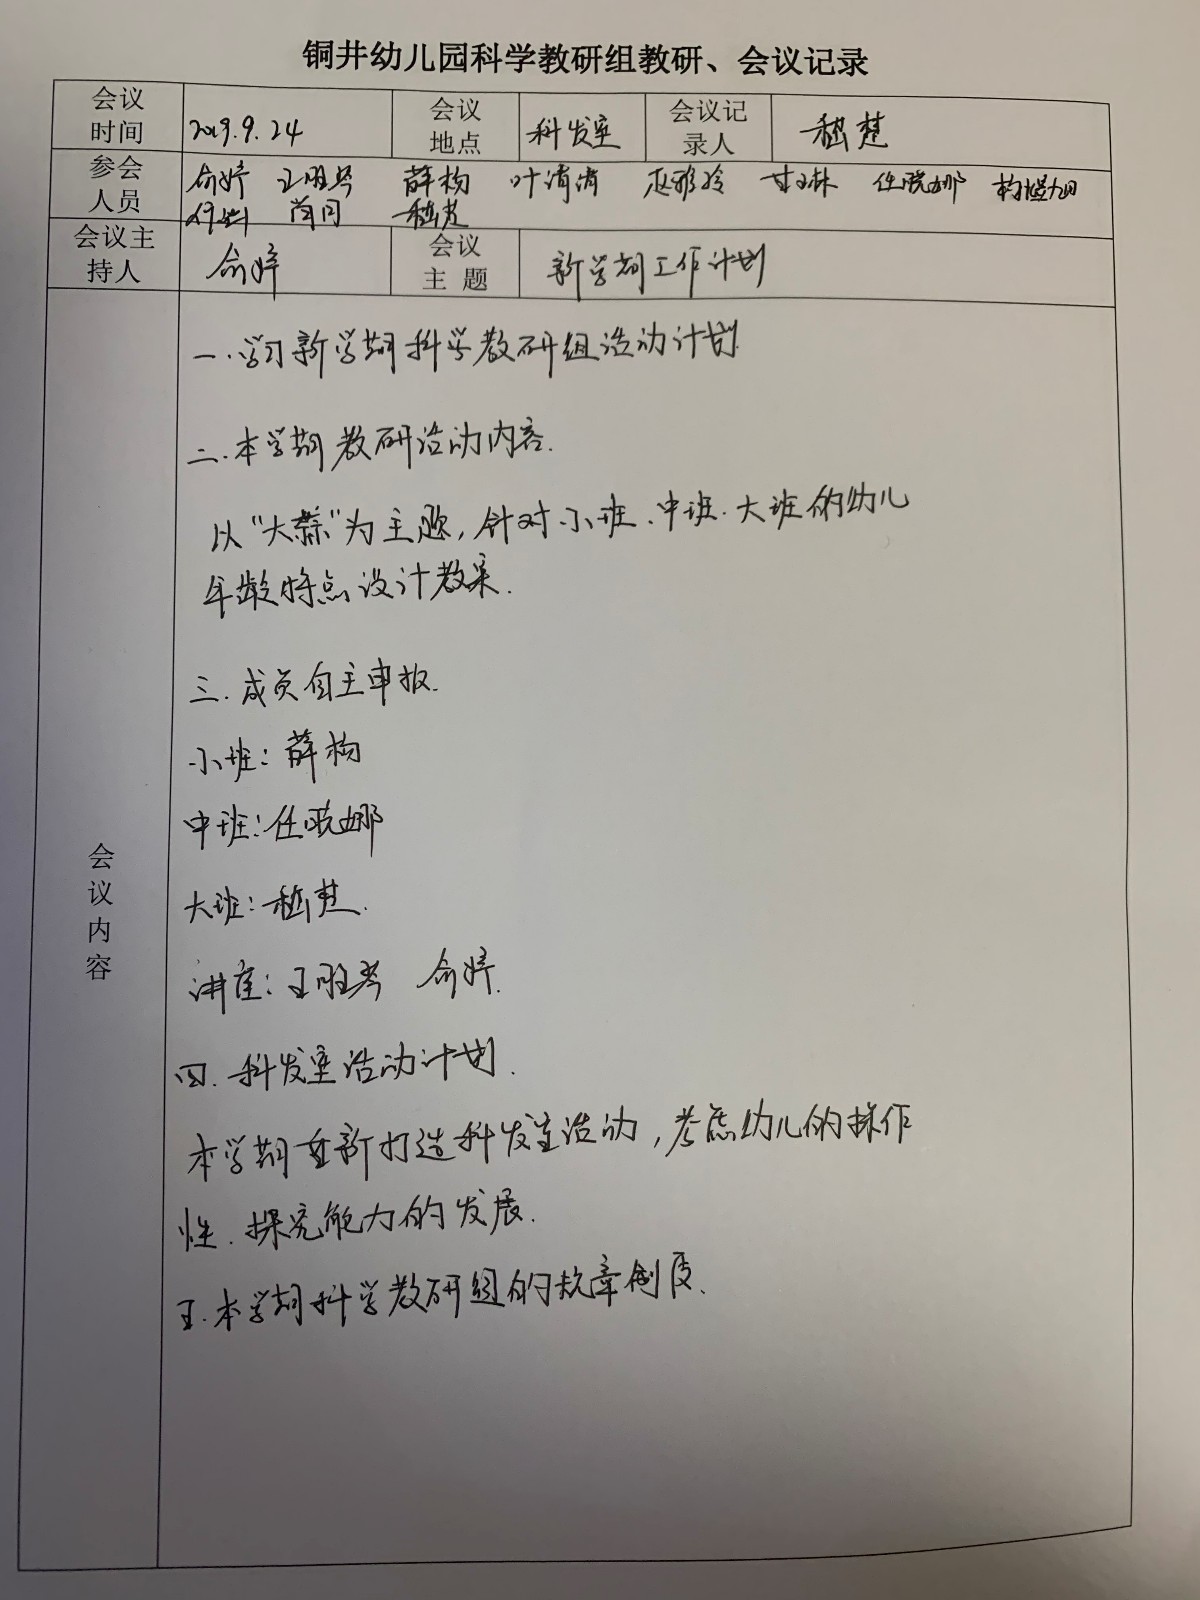 铜井幼儿园科学教研组教研、会议记录
会议时间 2019.9.24 会议地点 科发室 会议记录人 嵇楚
参会人员 俞婷 薛杨 叶清清 任晓娜
嵇楚
会议主持人 俞婷 会议主题 新学期工作计划
会议内容
一.学习新学期科学教研组活动计划.
二.本学期教研活动内容.
以“大蒜”为主题,针对小班、中班、大班的幼儿
年龄特点设计教案.
三.成员自主申报.
小班:薛杨
中班:任晓娜
大班:嵇楚.
讲座: 俞婷.
四.科发室活动计划.
本学期重新打造科发室活动,考虑幼儿的操作
性、探究能力的发展.
五.本学期科学教研组的规章制度.